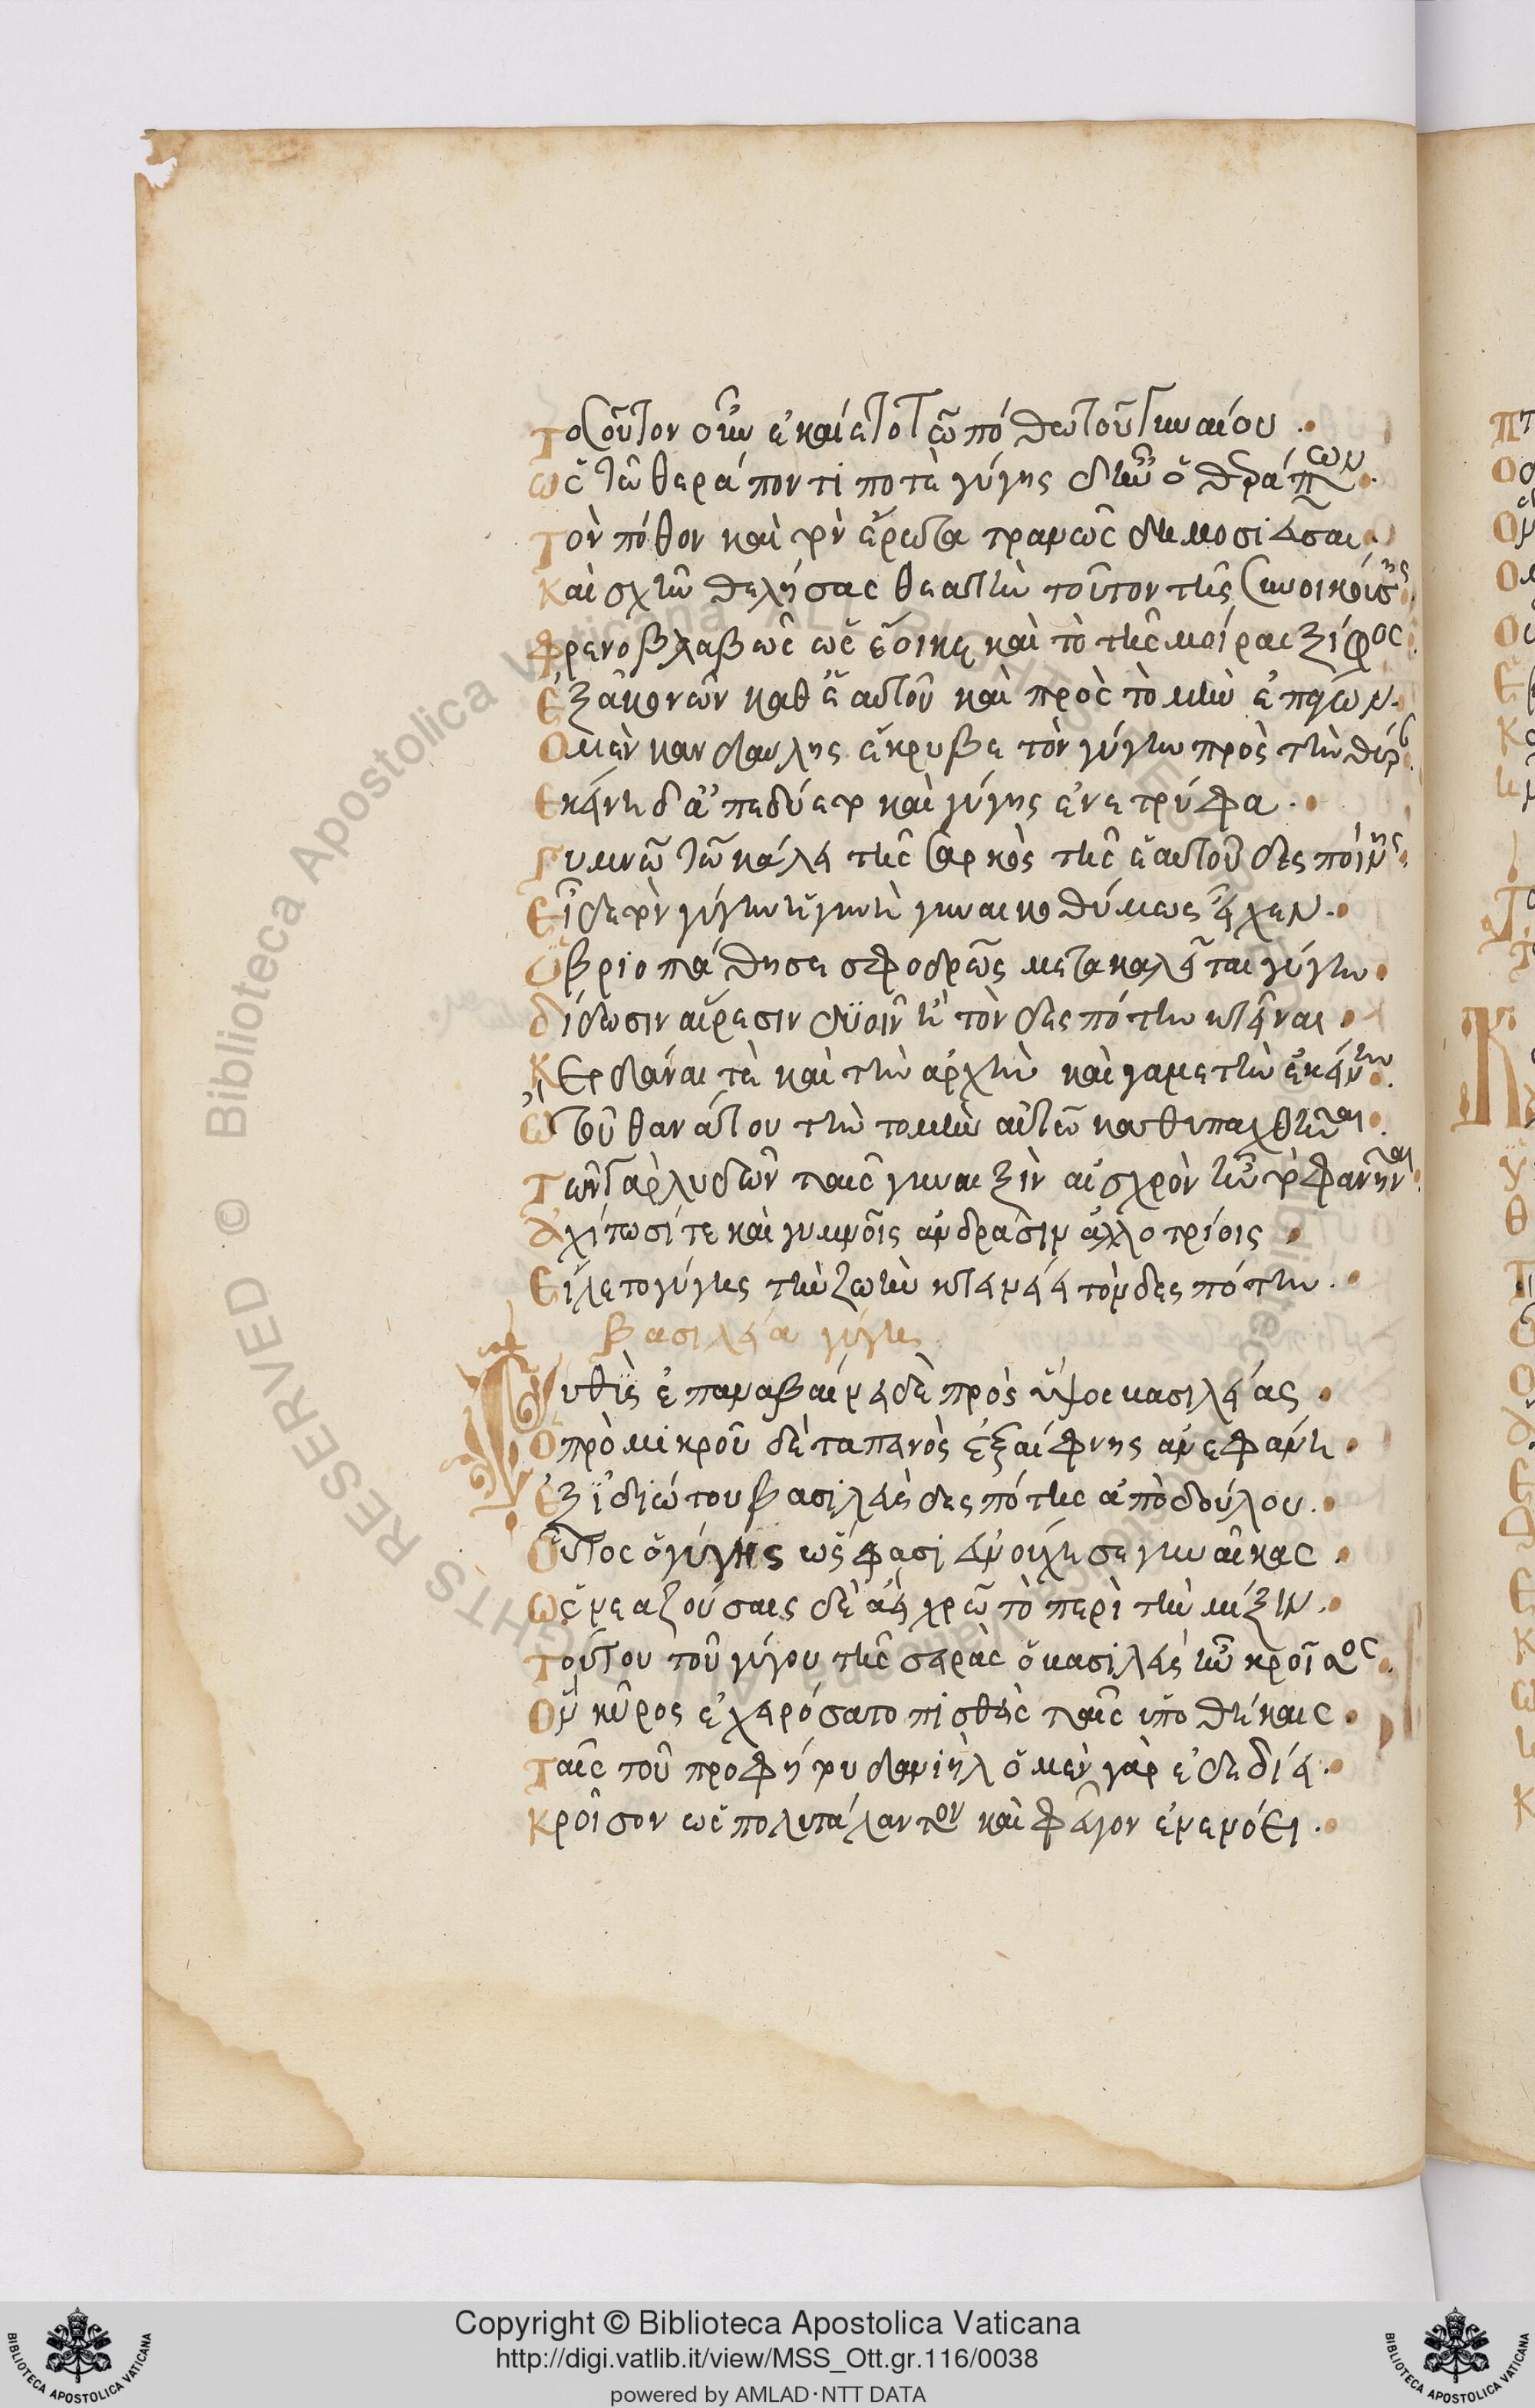 Τοσοῦτον οὖν ἐκαίετο τῶ πόθω τοῦ γυναίου
ὡς τῶ θεράποντί ποτε γύγης δ' ἦν ὁ θεράπων
Τὸν πόθον καὶ τὸν ἔρωτα τρανῶς δημοσιεῦσαι
Καὶ σχεῖν θελήσας θεατὴν τοῦτον τῆς συνοικούσης
Φρενοβλαβῶς ὡς ἔοικε καὶ τὸ τῆς μοίρας ξίφος
Ἐξακονῶν καθ' ἑαυτοῦ καὶ πρὸς τομὴν ἐπείγων
Ὁ μὲν κανδαύλης ἔκρυβε τὸν γύγην πρὸς τὴν θύραν
Ἐκείνη δ' ἀπεδύετο καὶ γύγης ἐνετρύφα
Γυμνῶ τῶ κάλει τῆς σαρκὸς τῆς ἑαυτοῦ δεσποίνης
Εἶδε τὸν γύγην ἡ γυνὴ γυναικοθύμως εἶχεν
Ὑβριοπάθησε σφοδρῶς μετακαλεῖται γύγην
δίδωσιν αἵρεσιν δυοῖν ἢ τὸν δεσπότην κτεῖναι
Κερδᾶναί τε καὶ τὴν ἀρχὴν καὶ γαμετὴν ἐκείνην
ἢ τοῦ θανάτου τὴν τομὴν αὐτῶ κατενεχθῆναι
Τῶν γὰρ λυδῶν ταῖς γυναιξὶν αἰσχρὸν ἦν τὸ φανῆναι
Ἀχίτωσί τε καὶ γυμνοῖς ἀνδράσιν ἀλλοτρίοις
Εἵλετο γύγης τὴν ζωὴν κτείνει τὸν δεσπότην
βασιλεία γύγης
Εὐθὺς ἐπαναβαίνει δὲ πρὸς ὕψος βασιλείας
Ὁ πρὸ μικροῦ δὲ ταπεινὸς ἐξαίφνης ἀνεφάνη
Ἐξ ἰδιώτου βασιλεὺς δεσπότης ἀπὸ δούλου
Οὗτος ὁ γύγης ὥς φασιν εὐνούχησε γυναῖκας
Ὡς νεαζούσαις δὲ ἀεὶ χρῶτο περὶ τὴν μίξιν
Τούτου τοῦ γύγου τῆς σειρᾶς ὁ βασιλεὺς ἦν κροῖσος
Ὃν κῦρος ἐχειρώσατο πεισθεὶς ταῖς ὑποθήκαις
Ταῖς τοῦ προφήτου δανιὴλ ὁ μὲν γὰρ ἐδεδίει
Κροῖσον ὡς πολυτάλαντον καὶ φεύγειν ἐνενόει
Copyright © Biblioteca Apostolica Vaticana
http://digi.vatlib.it/view/MSS_Ott.gr.116/0038
powered by AMLAD·NTT DATA